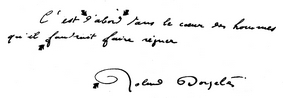 C'est d'abord dans le cœur des hommes
qu'il faudrait faire régner
Roland Dorgelès